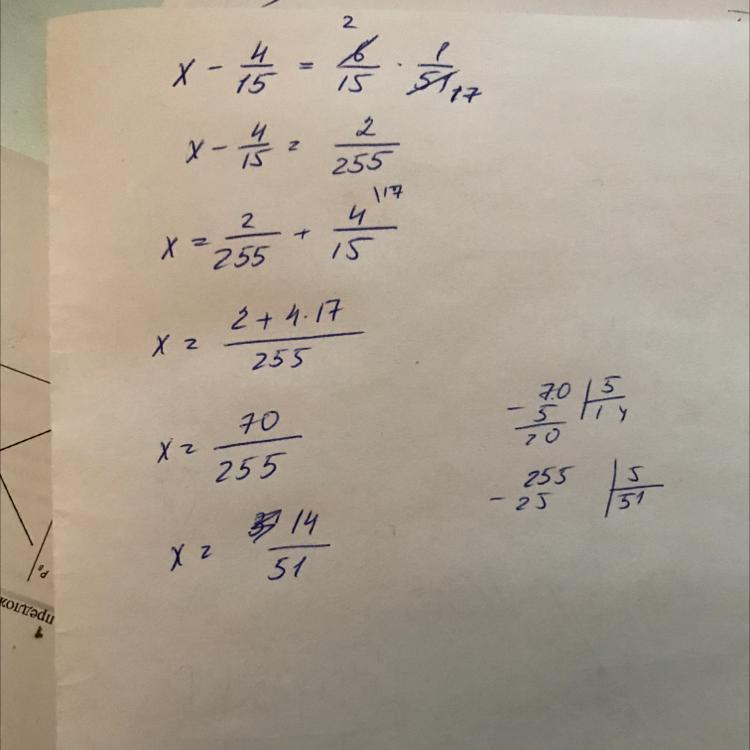 x - 4/15 = 6/15 · 1/51 2 17
x - 4/15 = 2/255
x = 2/255 + 4/15 \17
x = (2 + 4·17)/255
x = 70/255
x = 14/51
- 70 | 5
5 | 14
20
- 255 | 5
25 | 51
предлож
1
P₈